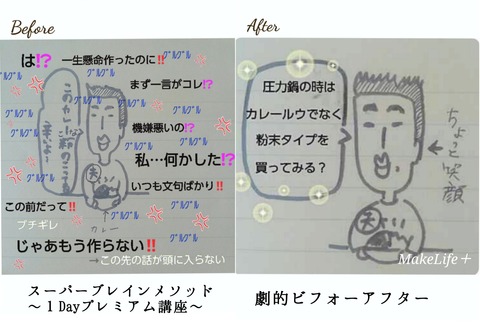 Before
は⁉
一生懸命作ったのに‼
グルグル
グルグル
グルグル
まず一言がコレ⁉
グルグル
グルグル
機嫌悪いの⁉
グルグル
私…何かした⁉
グルグル
いつも文句ばかり‼
グルグル
この前だって‼
ブチギレ
カレー
夫
グルグル
じゃあもう作らない‼
→この先の話が頭に入らない
スーパーブレインメソッド
～１Dayプレミアム講座～
After
圧力鍋の時は
カレールウでなく
粉末タイプを
買ってみる？
ちょっと笑顔
夫
MakeLife＋
劇的ビフォーアフター